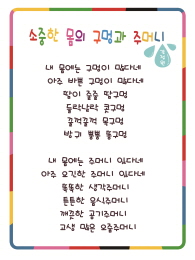 소중한 몸의 구멍과 주머니
내 몸에는 구멍이 많다네
아주 바쁜 구멍이 많다네
땀이 줄줄 땀구멍
들락날락 콧구멍
꿀꺽꿀꺽 목구멍
방귀 뿡뿡 똥구멍
내 몸에는 주머니 있다네
아주 요긴한 주머니 있다네
똑똑한 생각주머니
튼튼한 음식주머니
깨끗한 공기주머니
고생 많은 오줌주머니